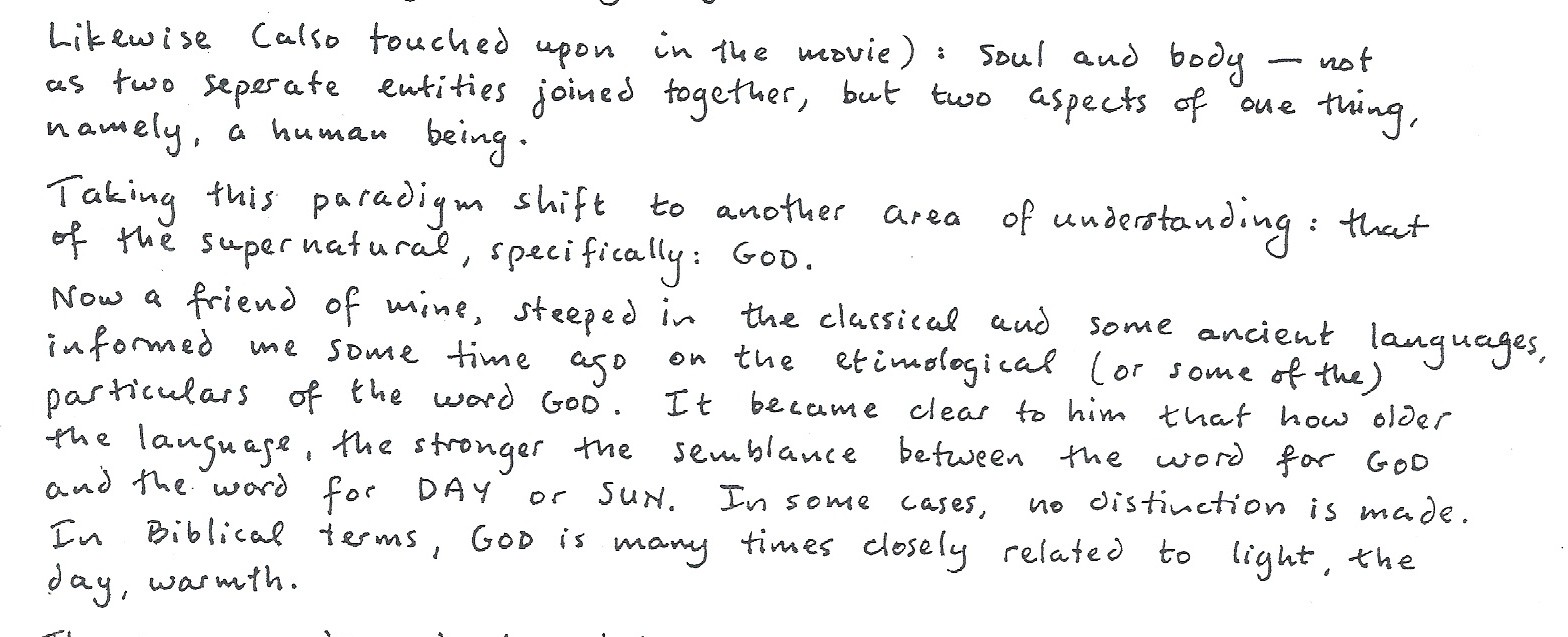 Likewise (also touched upon in the movie) : soul and body — not
as two seperate entities joined together, but two aspects of one thing,
namely, a human being.
Taking this paradigm shift to another area of understanding : that
of the supernatural, specifically: GOD.
Now a friend of mine, steeped in the classical and some ancient languages,
informed me some time ago on the etimological (or some of the)
particulars of the word GOD. It became clear to him that how older
the language, the stronger the semblance between the word for GOD
and the word for DAY or SUN. In some cases, no distinction is made.
In Biblical terms, GOD is many times closely related to light, the
day, warmth.